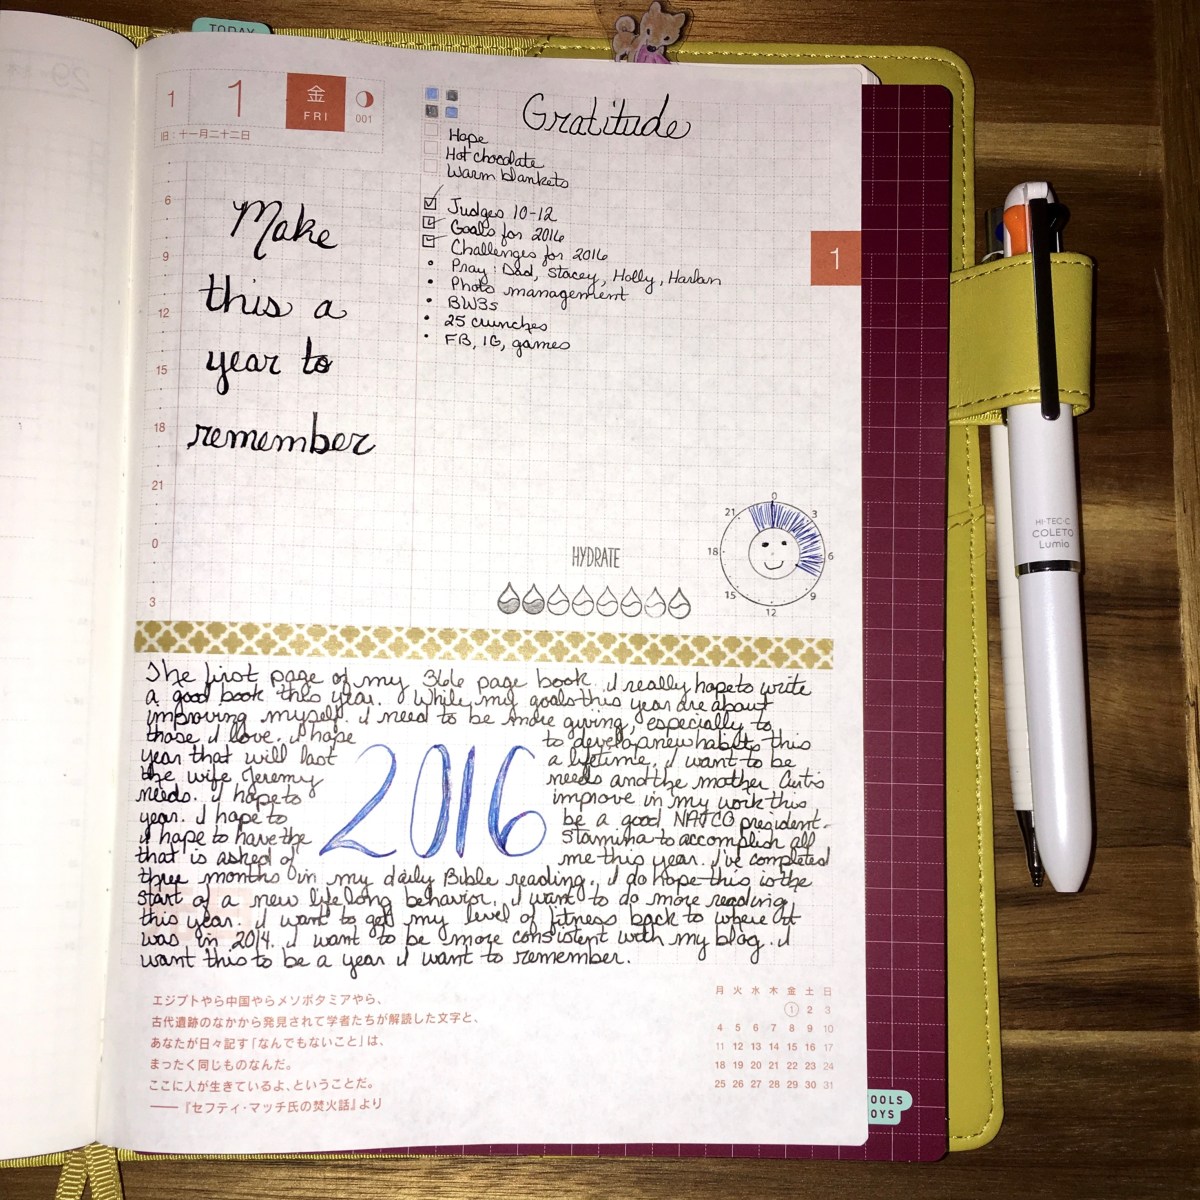 TODAY
1
1
金
FRI
001
旧：十一月二十二日
Gratitude
Hope
Hot chocolate
Warm blankets
Judges 10-12
Goals for 2016
Challenges for 2016
Pray: Dad, Stacey, Holly, Harlan
Photo management
BW3s
25 crunches
FB, IG, games
Make
this a
year to
remember
6
9
12
15
18
21
0
3
1
HYDRATE
0
3
6
9
12
15
18
21
The first page of my 366 page book. I really hope to write
a good book this year. While my goals this year are about
improving myself. I need to be more giving, especially to
those I love. I hope to develop new habits this
year that will last a lifetime. I want to be
the wife Jeremy needs and the mother Curtis
needs. I hope to improve in my work this
year. I hope to be a good NATCO president.
I hope to have the stamina to accomplish all
that is asked of me this year. I've completed
2016
three months in my daily Bible reading. I do hope this is the
start of a new life long behavior. I want to do more reading
this year. I want to get my level of fitness back to where it
was in 2014. I want to be more consistent with my blog. I
want this to be a year I want to remember.
エジプトやら中国やらメソポタミアやら、
古代遺跡のなかから発見されて学者たちが解読した文字と、
あなたが日々記す「なんでもないこと」は、
まったく同じものなんだ。
ここに人が生きているよ、ということだ。
——『セフティ・マッチ氏の焚火話』より
月 火 水 木 金 土 日
1 2 3
4 5 6 7 8 9 10
11 12 13 14 15 16 17
18 19 20 21 22 23 24
25 26 27 28 29 30 31
HI-TEC-C
COLETO
Lumio
TOOLS
TOYS